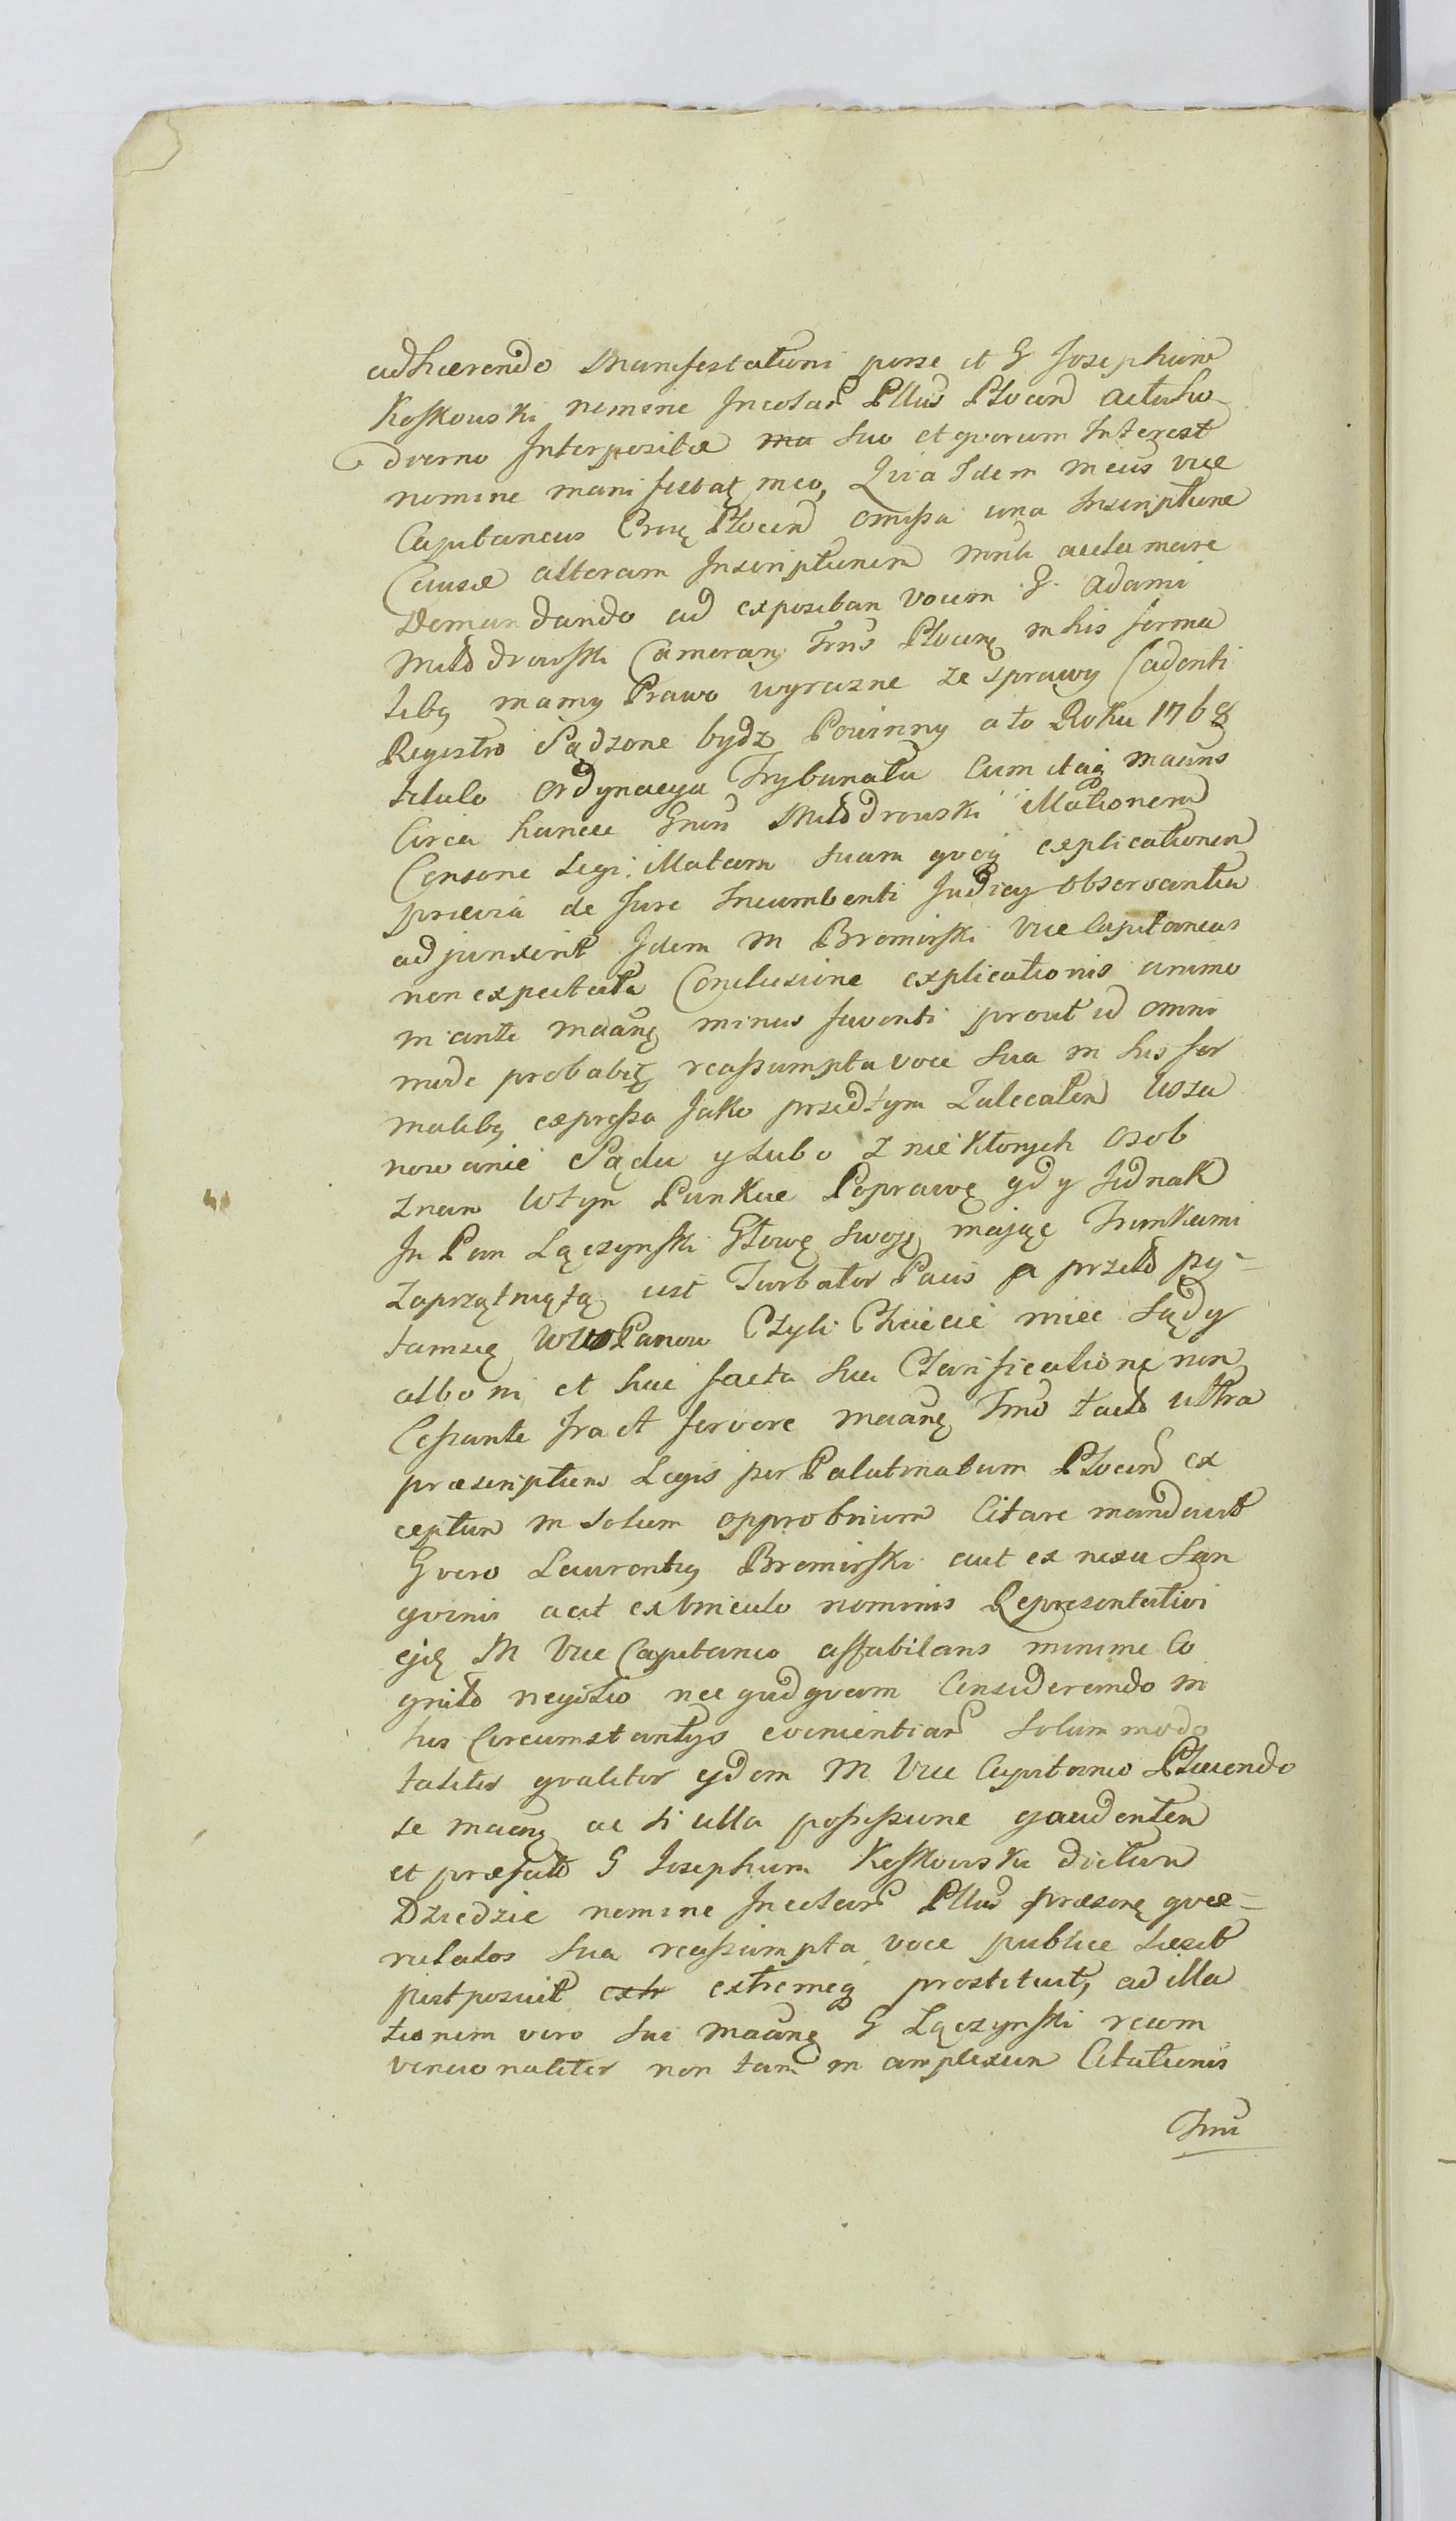 adhaerendo Manifestationi per se et G Josephum
Koskowski nomine Incolar Pllus Plocen actu ho
dierno Interpositae ma suo et quorum Interest
nomine manifestatq meo, Quia Idem meus vice
Capitaneus Crus Plocen omissa una Inscriptione
Causae alteram Inscriptionem Mnli acclamare
Demandando ad expositam vocem G. Adami
Młodrowski Camerary Trrus Plocens in his forma
liby mamy Prawo wyrazne ze sprawy Cadenti
Registro Sądzone bydz Powinny a to Roku 1768
titulo Ordynacya Trybunału Cum itaq maans
Circa hancce Gnsus Młodrowski illationem
Consone Legi illatam suam quoq explicationem
praevia de Jure Incumbenti Judicy observantia
adjunxerit Idem M Bromirski Vice Capitaneus
non expectata Conclusione explicationis animo
in ante maang minus faventi prout id omni
mode probabitq reassumpta voce sua in his for
malibq expressa Jako przedtym Zalecałem Usza
nowanie Sądu y lubo z niektorych osob
znam w tym Punkcie Poprawę gdy Jednak
Jn Pan Łączynski Głowę swoję maiąc Trunkami
zaprzątnętą iest Turbator Pacis a przeto py=
tam się WW Panow Czyli Chcecie miec Sądy
albo ni et hac facta sua Clarificatione non
Cessante Ira et fervore maang Trrus facto ultra
praescriptum Legis per Palatinatum Plocen ex
ceptum in solum opprobrium Citare mandavit
G vero Laurentig Bromirski aut ex nexu San
guinis aut ex vinculo nominis Repraesentativi
ejq M Vice Capitaneo assabilans minime Co
gnito negotio nec quidquam Considerando in
his Circumstantys evenientiar solum modo
taliter qualiter ejdem M Vice Capitaneo Placendo
se maang ac si ulla possessione gaudentem
et praefato G Josephum Koskowski dictum
Dziedzic nomine Incolar Pllus praesens quae=
rulatos sua reassumpta voce publice Laesit
postposuit extr extremeq prostituit, ad illa
tionem vero sui maang G Łączynski recom
vencionaliter non tam in amplexum Citationis
Trru